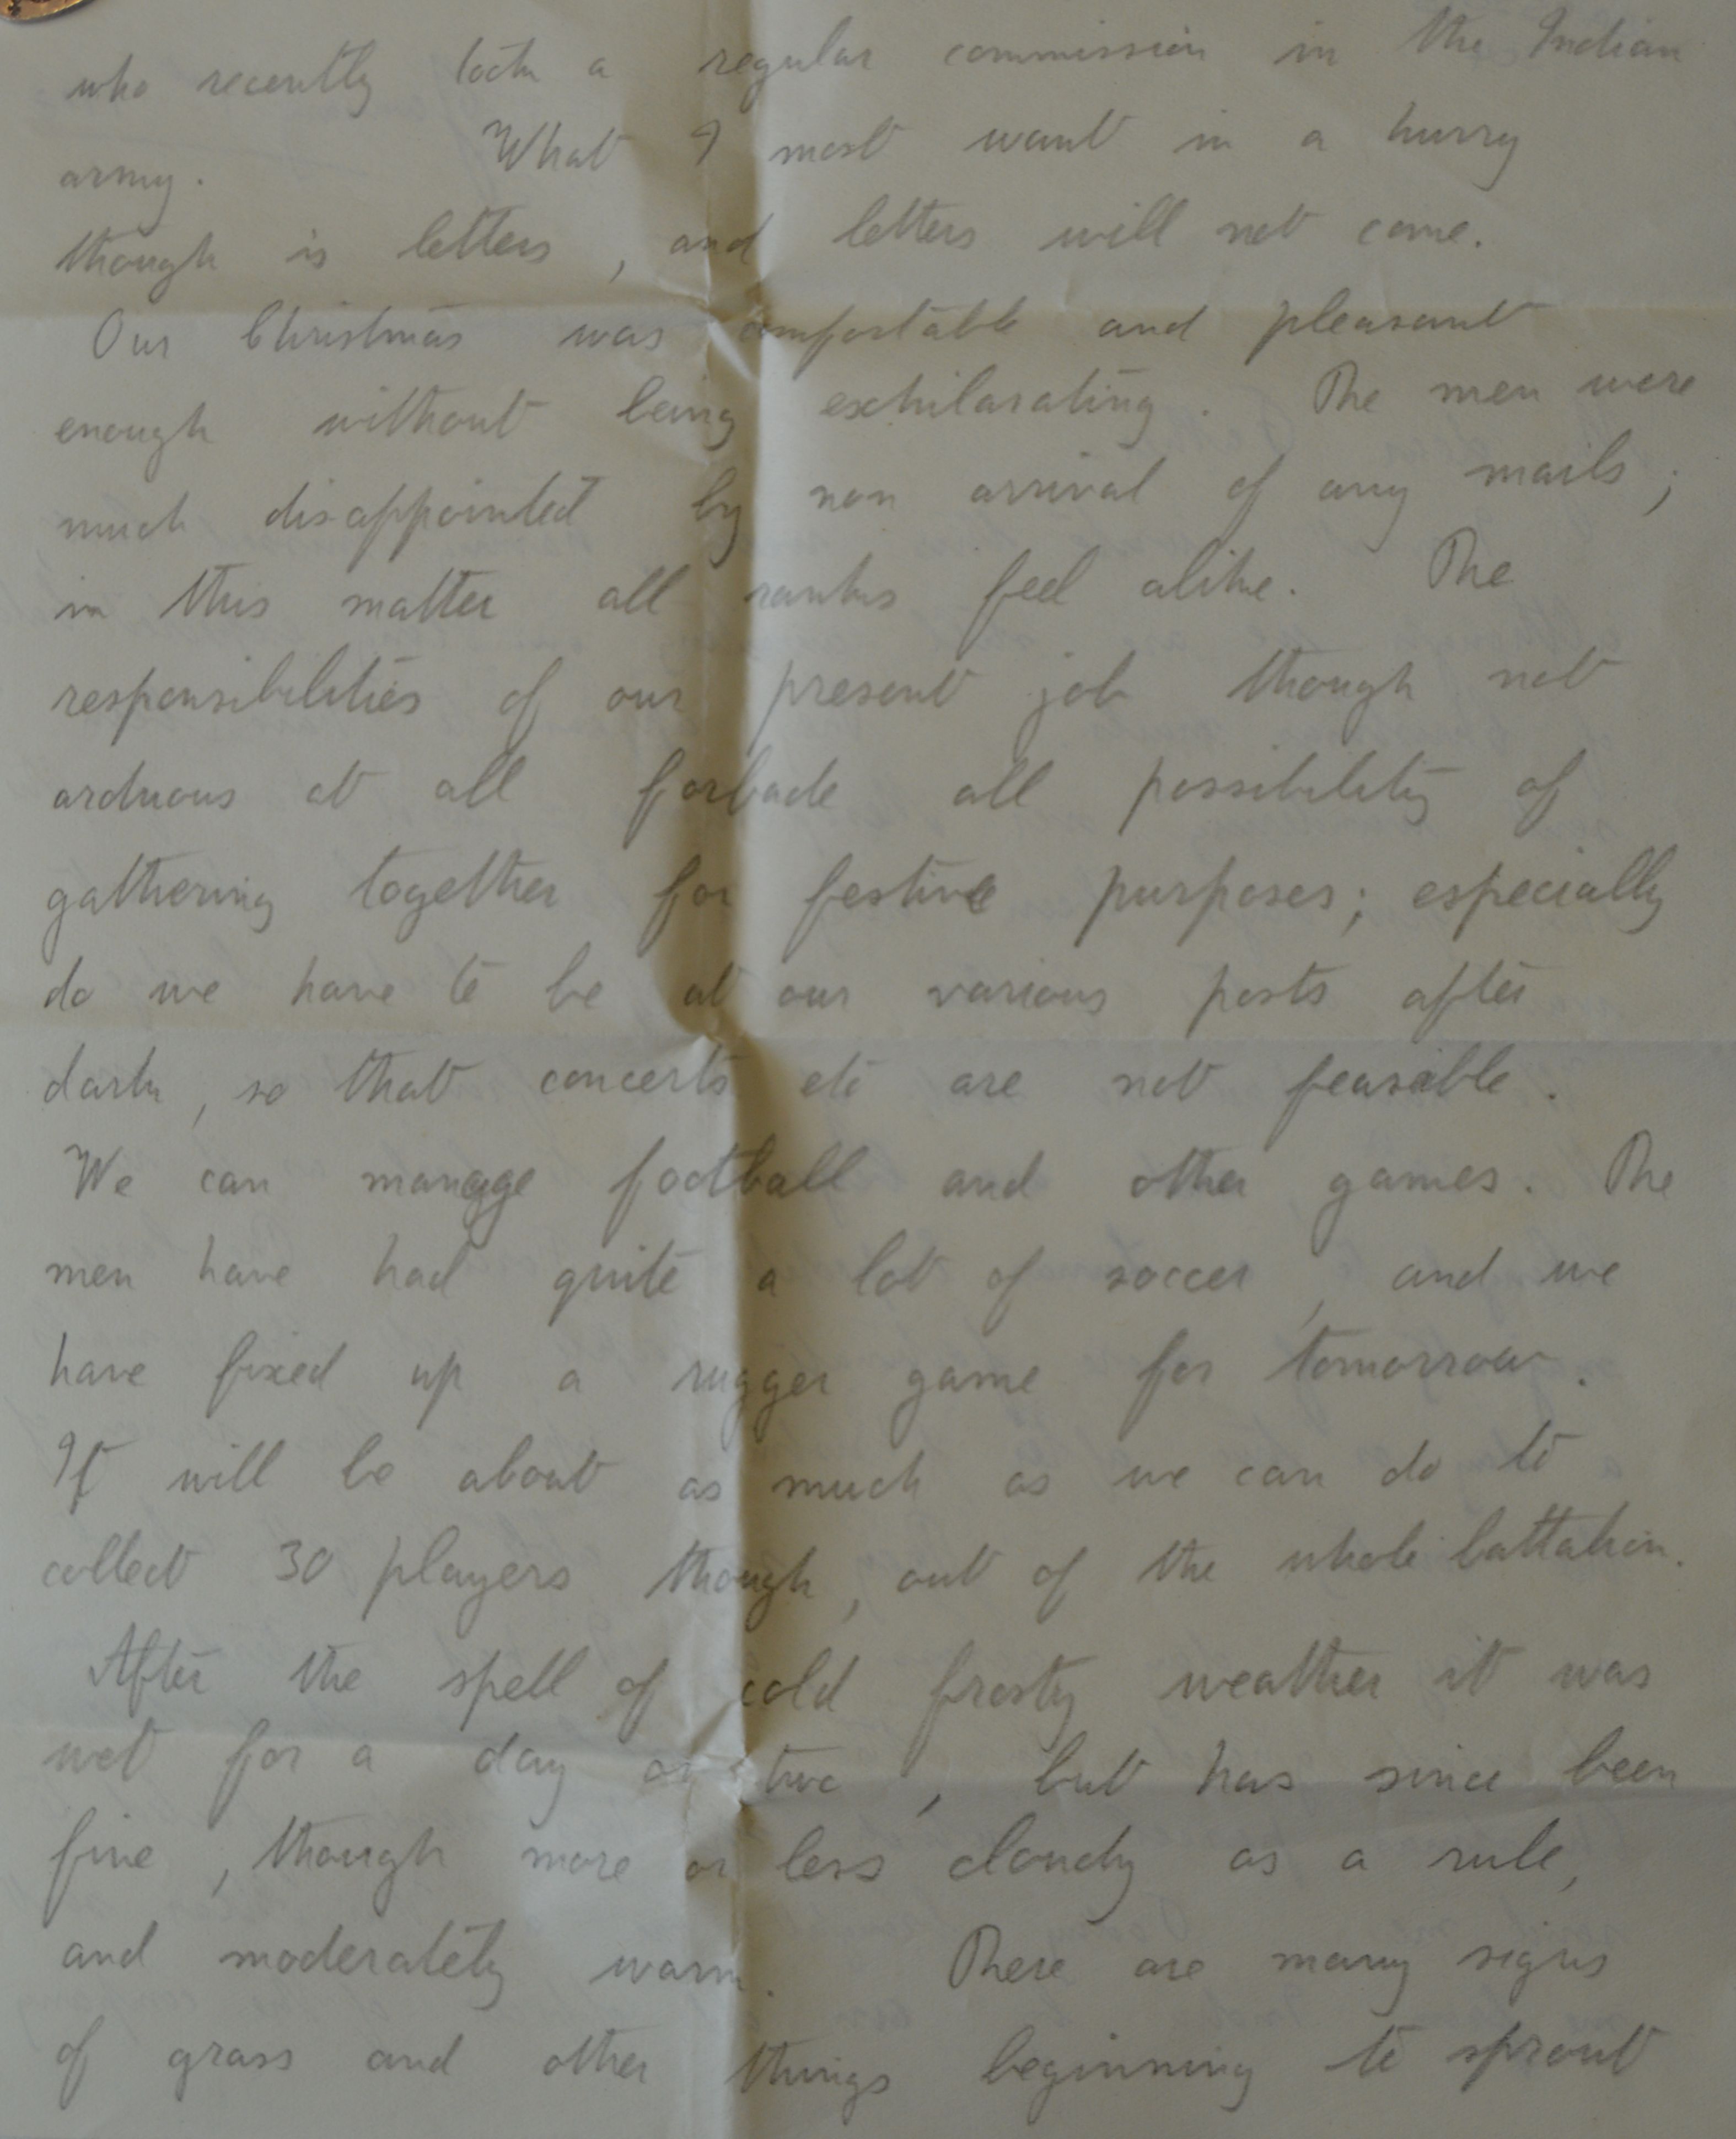 who recently took a regular commission in the Indian
army. What I most want in a hurry
though is letters, and letters will not come.
Our Christmas was comfortable and pleasant
enough without being exhilarating. The men were
much disappointed by non arrival of any mails;
in this matter all ranks feel alike. The
responsibilities of our present job though not
arduous at all forbade all possibility of
gathering together for festive purposes; especially
do we have to be at our various posts after
dark, so that concerts etc are not feasible.
We can manage football and other games. The
men have had quite a lot of soccer, and we
have fixed up a rugger game for tomorrow.
It will be about as much as we can do to
collect 30 players though, out of the whole battalion.
After the spell of cold frosty weather it was
wet for a day or two, but has since been
fine, though more or less cloudy as a rule,
and moderately warm. There are many signs
of grass and other things beginning to sprout